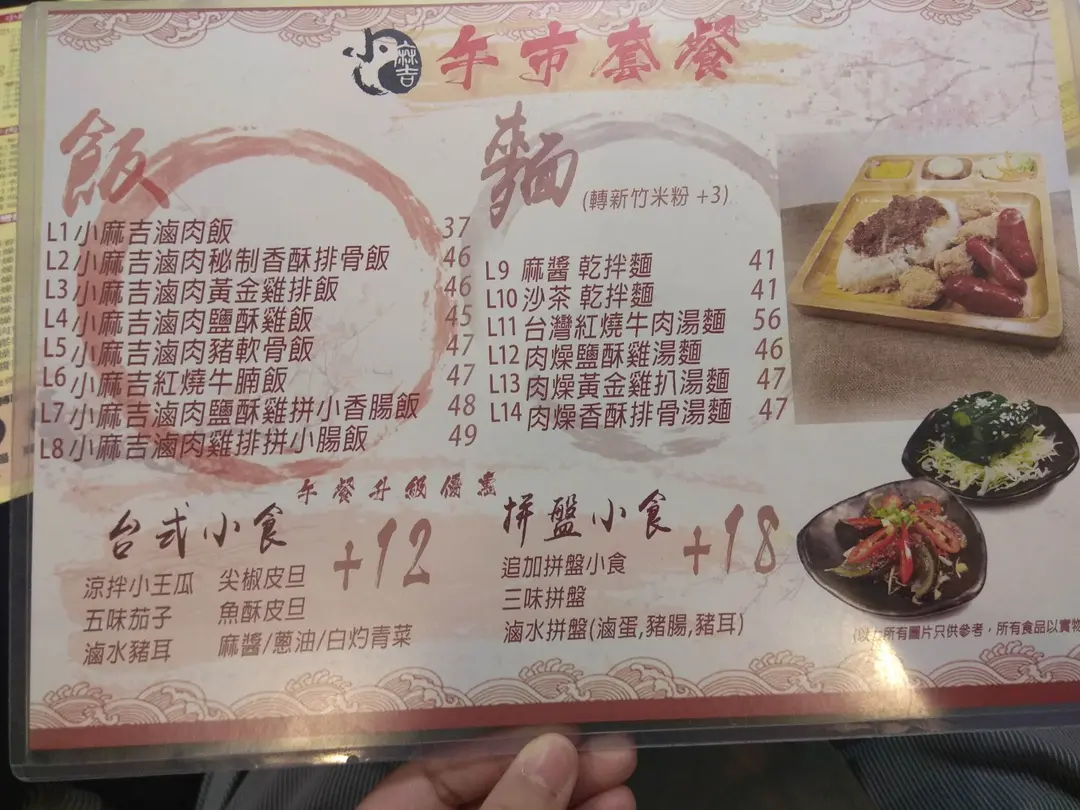 小麻吉 午市套餐
飯
L1 小麻吉滷肉飯 37
L2 小麻吉滷肉秘制香酥排骨飯 46
L3 小麻吉滷肉黃金雞排飯 46
L4 小麻吉滷肉鹽酥雞飯 45
L5 小麻吉滷肉豬軟骨飯 47
L6 小麻吉紅燒牛腩飯 47
L7 小麻吉滷肉鹽酥雞拼小香腸飯 48
L8 小麻吉滷肉雞排拼小腸飯 49
麵 (轉新竹米粉 +3)
L9 麻醬 乾拌麵 41
L10 沙茶 乾拌麵 41
L11 台灣紅燒牛肉湯麵 56
L12 肉燥鹽酥雞湯麵 46
L13 肉燥黃金雞扒湯麵 47
L14 肉燥香酥排骨湯麵 47
午餐升級優惠
台式小食 +12
涼拌小王瓜 尖椒皮旦
五味茄子 魚酥皮旦
滷水豬耳 麻醬/蔥油/白灼青菜
拼盤小食 +18
追加拼盤小食
三味拼盤
滷水拼盤(滷蛋,豬腸,豬耳)
(以上所有圖片只供參考，所有食品以實物